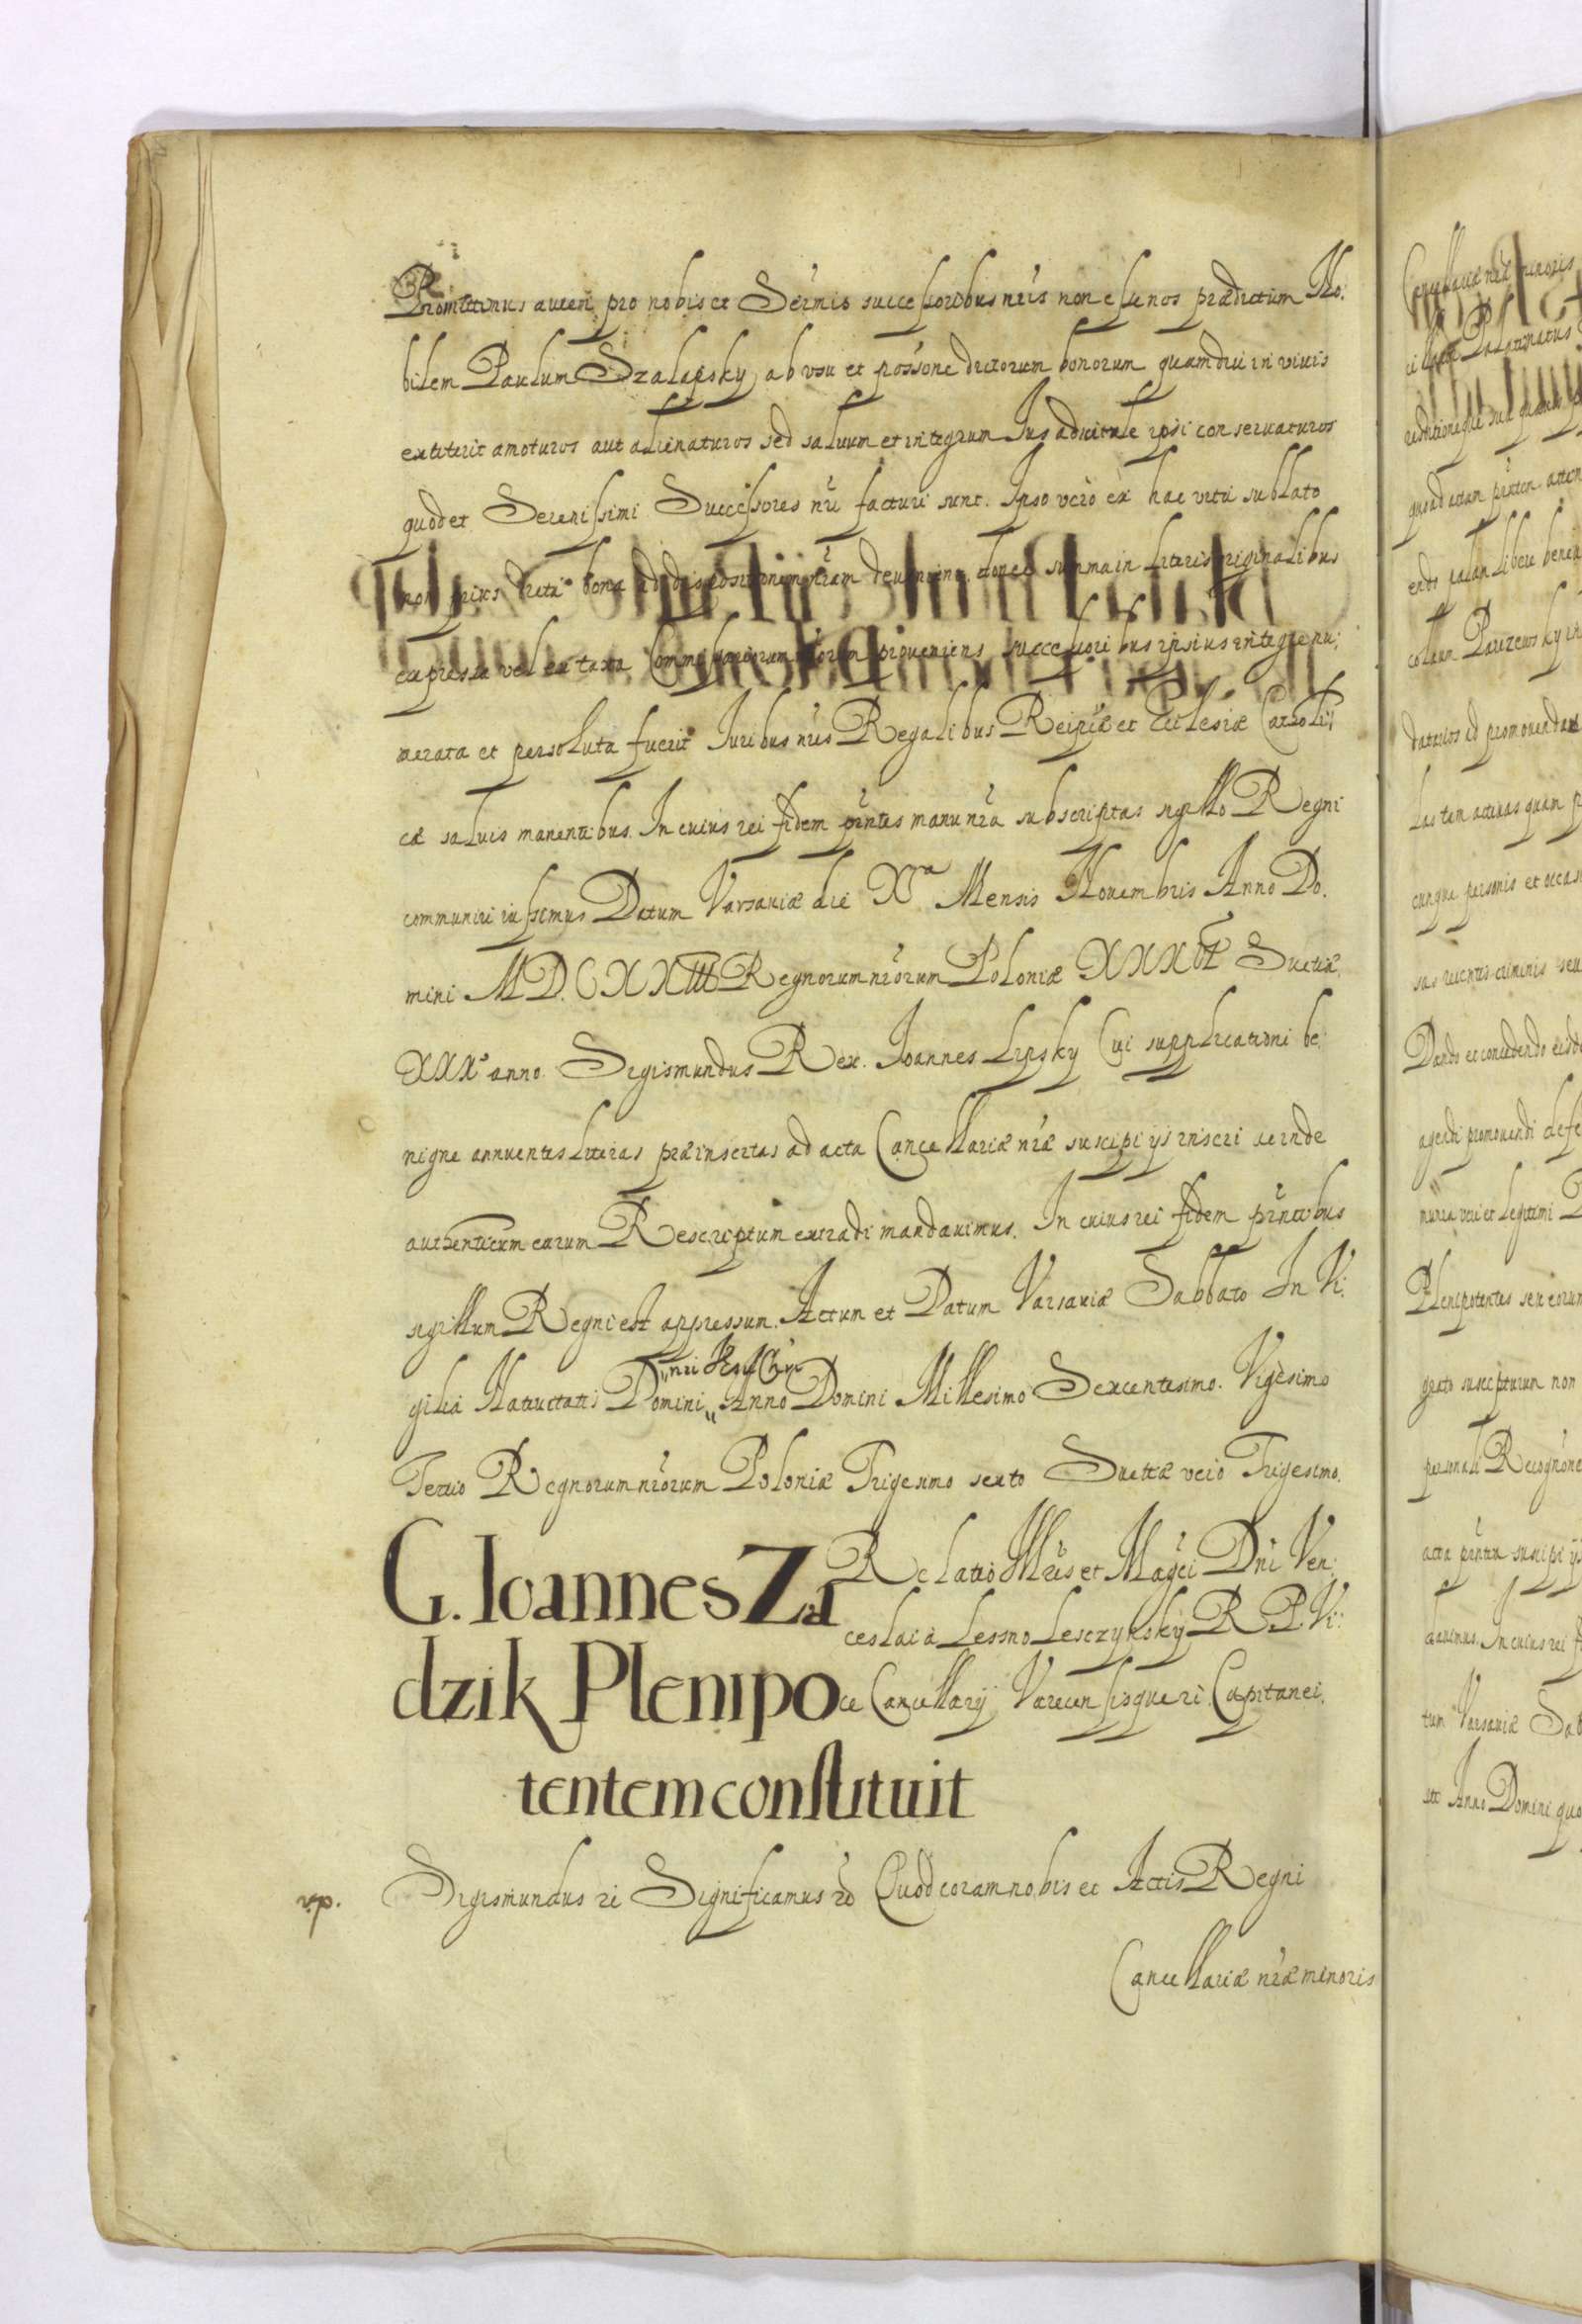 Promittimus autem pro nobis et Sermis successoribus nris non esse nos prædictum No:
bilem Paulum Szalapsky ab vsu et possone dictorum bonorum quamdiu in viuis
extiterit amoturos aut alienaturos sed saluum et integrum Ius aduitale ipsi conseruaturos
quod et Serenissimi Successores nri facturi sunt. Ipso vero ex hac vita sublato
non prius dicta bona ad dispositionem nram deuenient donec summa in literis originalibus
expressa vel ex taxa Commissariorum nrorum proueniens successoribus ipsius integre nu:
merata et persoluta fuerit Iuribus nris Regalibus Reipcæ et Ecclesiæ Catholi:
cæ saluis manentibus. In cuius rei fidem pntes manu nra subscriptas sigillo Regni
communiri iussimus Datum Varsauiæ die Xa Mensis Nouembris Anno Do.
mini M.D.CXXIII Regnorum nrorum Poloniæ XXXVI Suetiæ
XXXo anno. Sigismundus Rex. Ioannes Lipsky Cui supplicationi be:
nigne annuentes literas præinsertas ad acta Cancellariæ nræ suscipi ijs inseri et inde
authenticum earum Rescriptum extradi mandauimus. In cuius rei fidem pntibus
sigillum Regni est appressum. Actum et Datum Varsauiæ Sabbato In Vi:
nri Iesu Chri
gilia Natiuitatis Domini Anno Domini Millesimo Sexcentesimo. Vigesimo
Tertio Regnorum nrorum Poloniæ Trigesimo sexto Suetiæ vero Trigesimo.
G. Ioannes Za
dzik Plenipo
tentem constituit
Relatio Illris et Magci Dni Ven:
ceslai à Lessno Lesczynsky R. P. Vi:
ce Cancellarij Varecensisque ri Capitanei.
Sigismundus ri Significamus ro Quod coram nobis et Actis Regni
Cancellariæ nræ minoris
Cancellariæ nræ minoris
endo palam libere
Dando et concedendo
agendi promouendi
Plenipotentes seu eorum
gesto suscepturum non
personali
dauimus. In cuius rei
tum Varsauiæ
Anno Domini quo